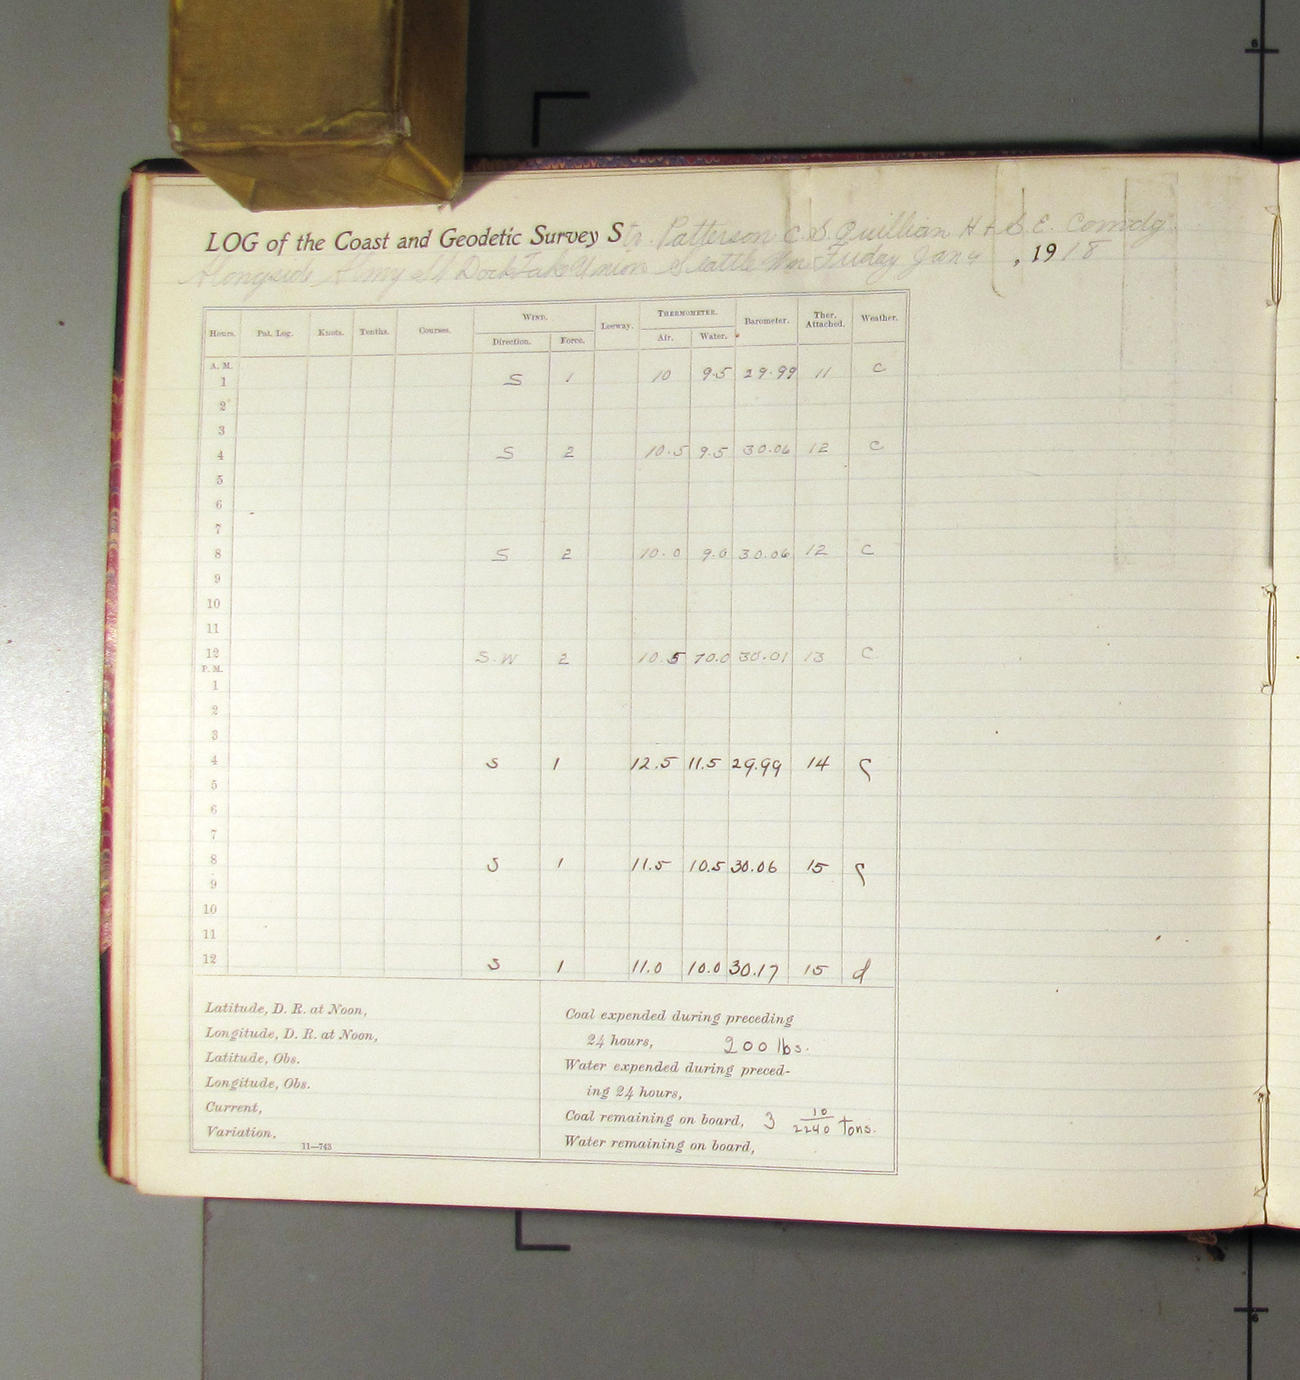 LOG of the Coast and Geodetic Survey Str. Patterson C. S. Quillian H + G. E. Comdg.
Alongside Almy St Dock Lake Union Seattle Wn Friday Jan 4, 1918
Hours. Pat. Log. Knots. Tenths. Courses. WIND. Leeway. THERMOMETER. Barometer. Ther. Attached. Weather.
Direction. Force. Air. Water.
A. M.
1 S 1 10 9.5 29.99 11 C
2
3
4 S 2 10.5 9.5 30.06 12 C
5
6
7
8 S 2 10.0 9.0 30.06 12 C
9
10
11
12 S.W 2 10.5 10.0 30.01 13 C
P. M.
1
2
3
4 S 1 12.5 11.5 29.99 14 ς
5
6
7
8 S 1 11.5 10.5 30.06 15 ς
9
10
11
12 S 1 11.0 10.0 30.17 15 d
Latitude, D. R. at Noon,
Longitude, D. R. at Noon,
Latitude, Obs.
Longitude, Obs.
Current,
Variation,
11—743
Coal expended during preceding
24 hours, 200 lbs.
Water expended during preced-
ing 24 hours,
Coal remaining on board, 3 10/2240 tons.
Water remaining on board,
6
6